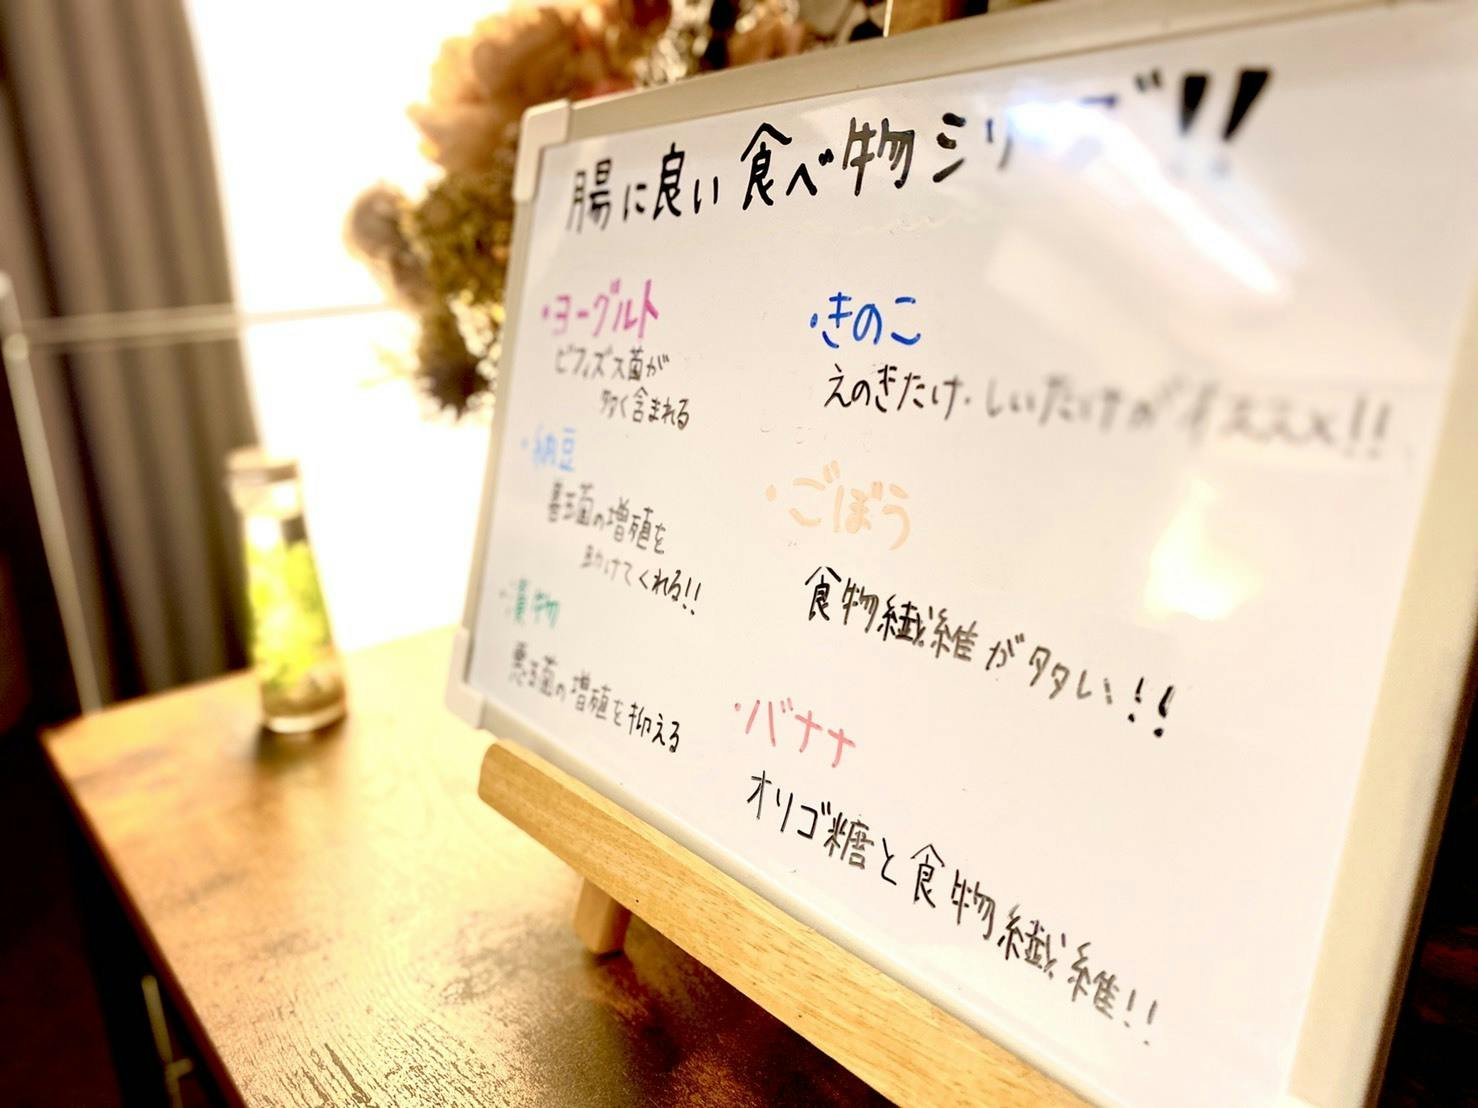 腸に良い食べ物シリーズ!!
・ヨーグルト
ビフィズス菌が
多く含まれる
・納豆
善玉菌の増殖を
助けてくれる!!
・漬物
悪玉菌の増殖を抑える
・きのこ
えのきたけ・しいたけがオススメ!!
・ごぼう
食物繊維が多い!!
・バナナ
オリゴ糖と食物繊維!!